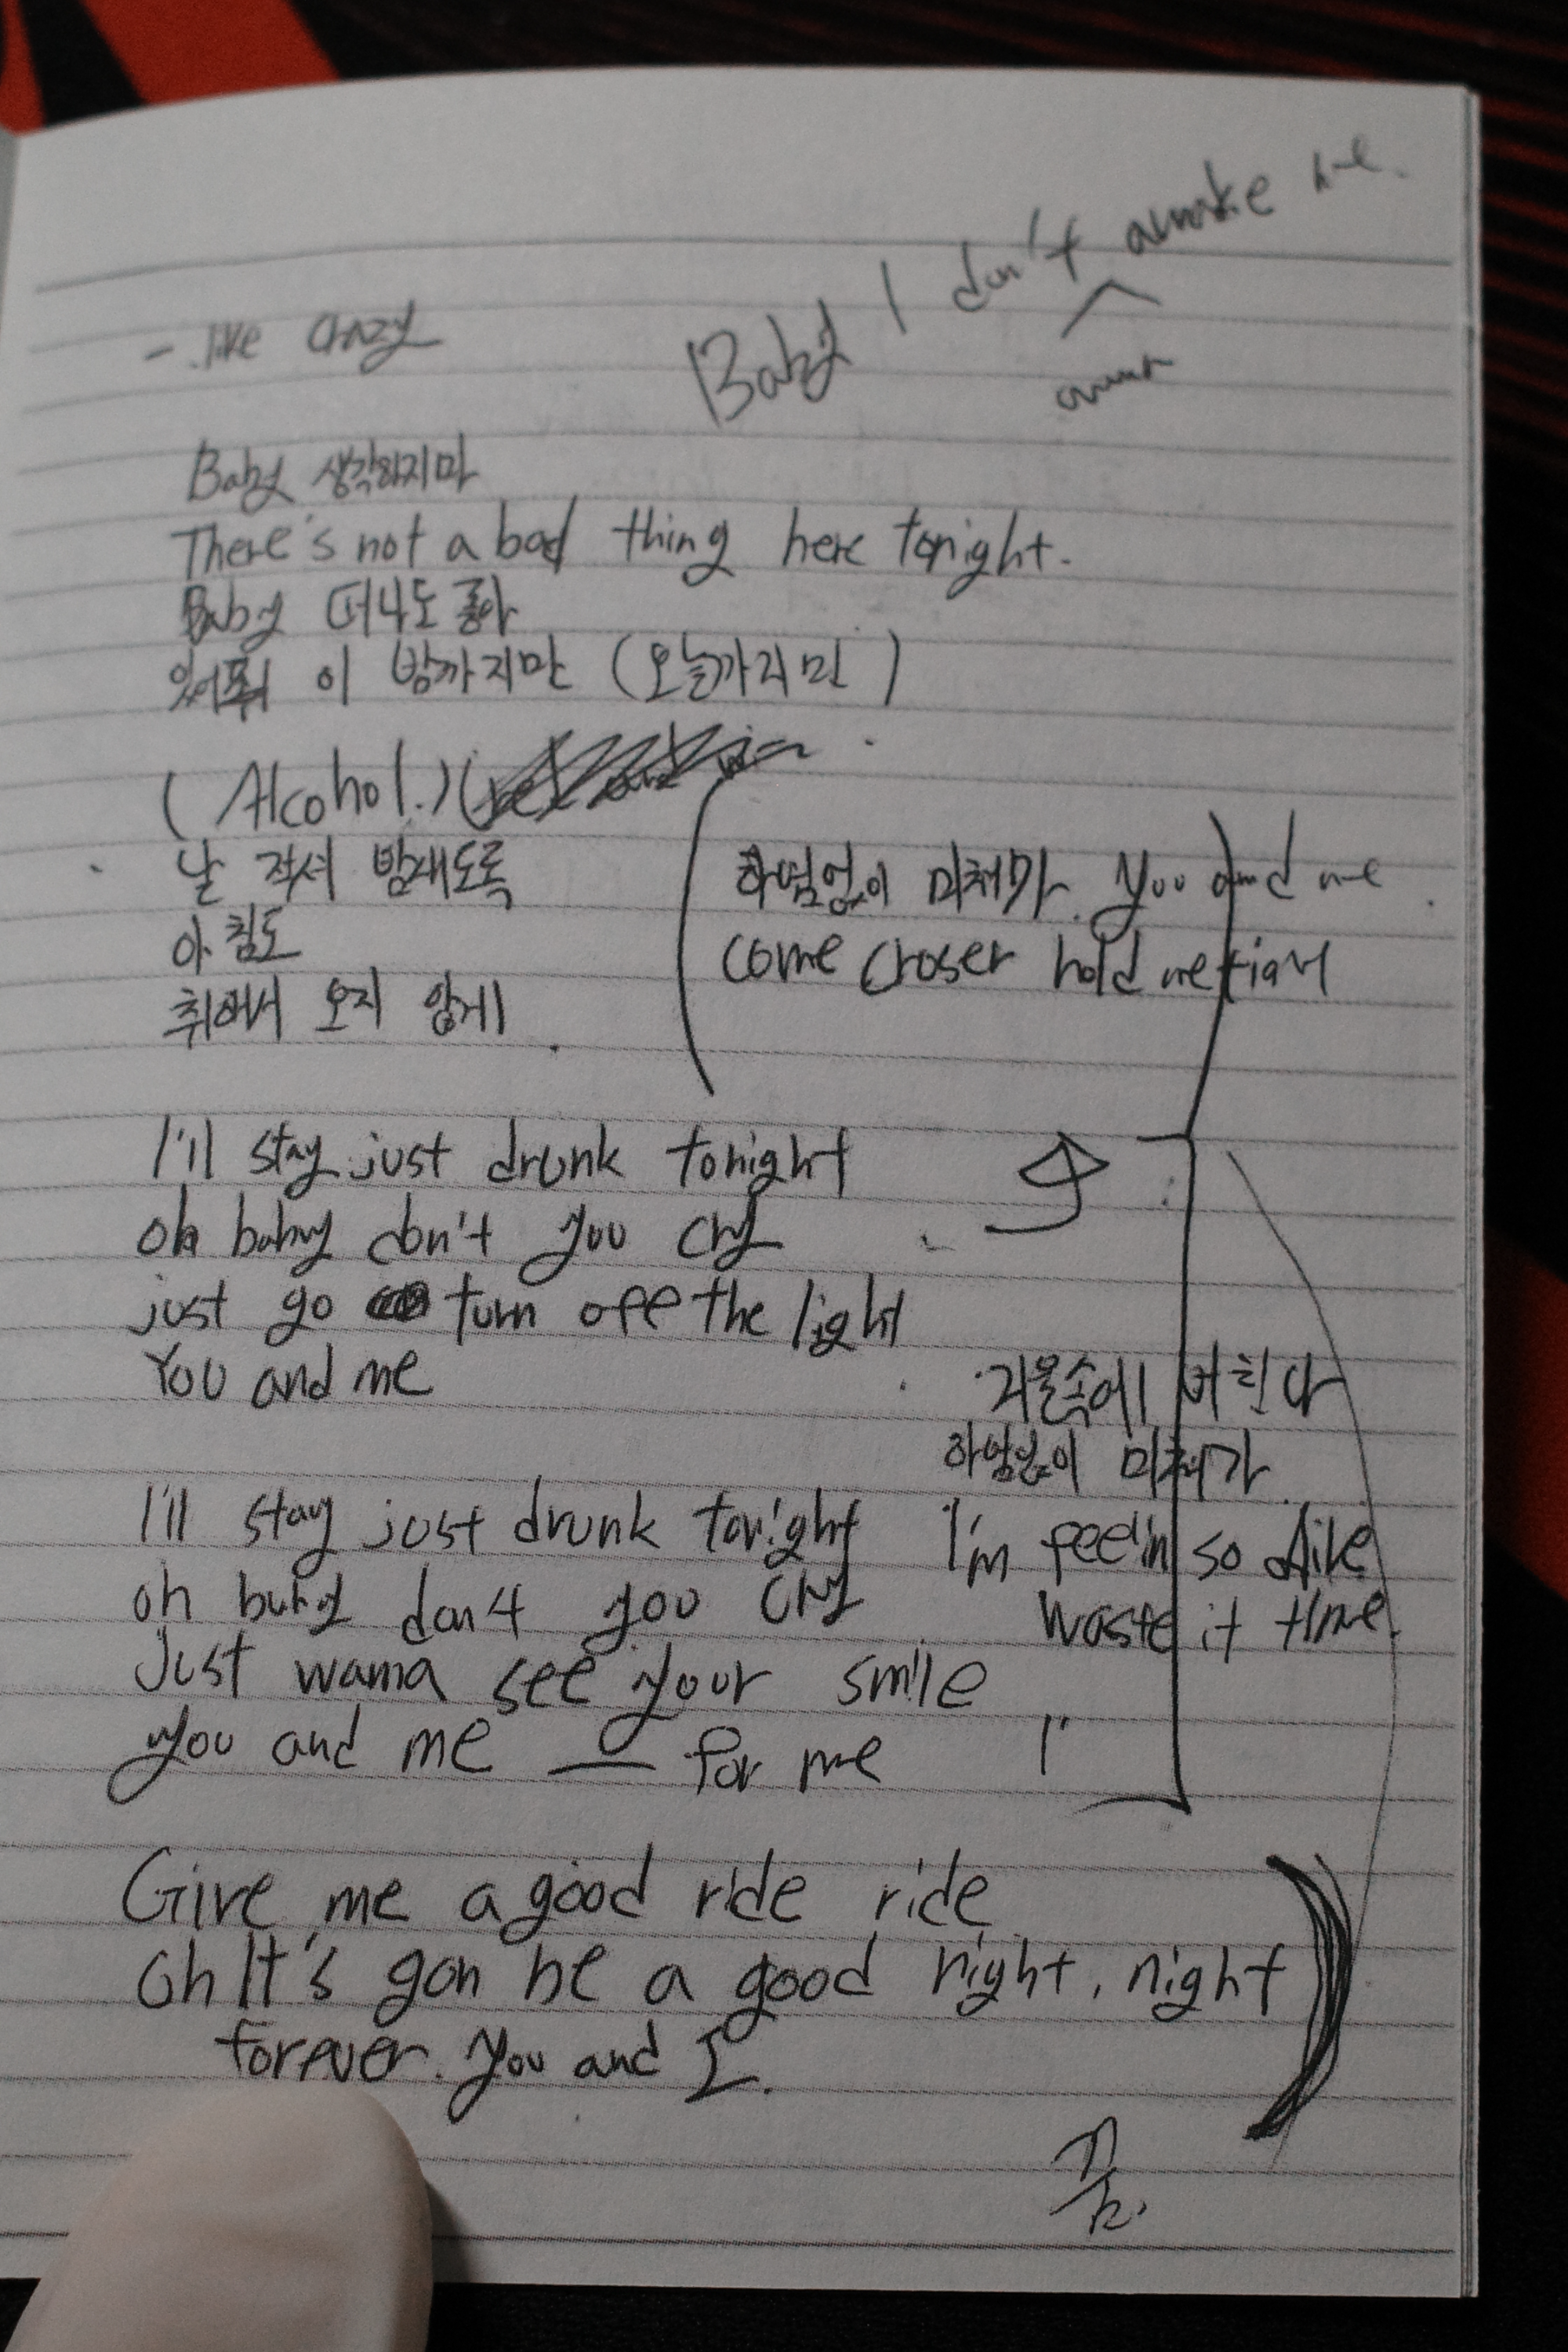 Baby I don't awake me.
- like crazy
Baby 생각하지마
There's not a bad thing here tonight.
Baby 떠나도 좋아
있어줘 이 밤까지만 (오늘까지만)
(Alcohol.)
날 적셔 밤새도록
아침도
취해서 오지 않게
하염없이 미쳐가. You and me
come croser hold me tight
I'll stay just drunk tonight
oh baby don't you cry
just go turn off the light
You and me
거울속에 비친 나
하염없이 미쳐가
I'll stay just drunk tonight
oh baby don't you cry
Just wanna see your smile
you and me — for me
I'm feel'in so alive
waste it time.
Give me a good ride ride
oh It's gon be a good night, night
forever. you and I.